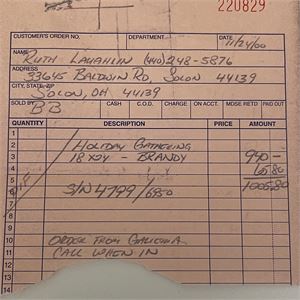 220829
CUSTOMER'S ORDER NO. DEPARTMENT DATE 11/24/00
NAME RUTH LAUGHLIN (440) 248-5876
ADDRESS 33645 BALDWIN RD, SOLON 44139
CITY, STATE, ZIP SOLON, OH 44139
SOLD BY BB CASH C.O.D. CHARGE ON ACCT. MDSE RETD PAID OUT
QUANTITY DESCRIPTION PRICE AMOUNT
1
2 HOLIDAY GATHERING
3 18X24 - BRANDY 940 -
4 65.80
5 S/N 4799/6950 1005.80
6
7
8
9
10 ORDER FROM GALLERIA
11 CALL WHEN IN
14